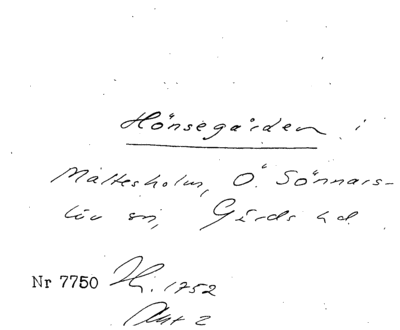 Hönsegården i
Maltesholm, Ö. Sönnars-
löv sn, Gärds hd
Nr 7750 Hi. 1752
Akt 2